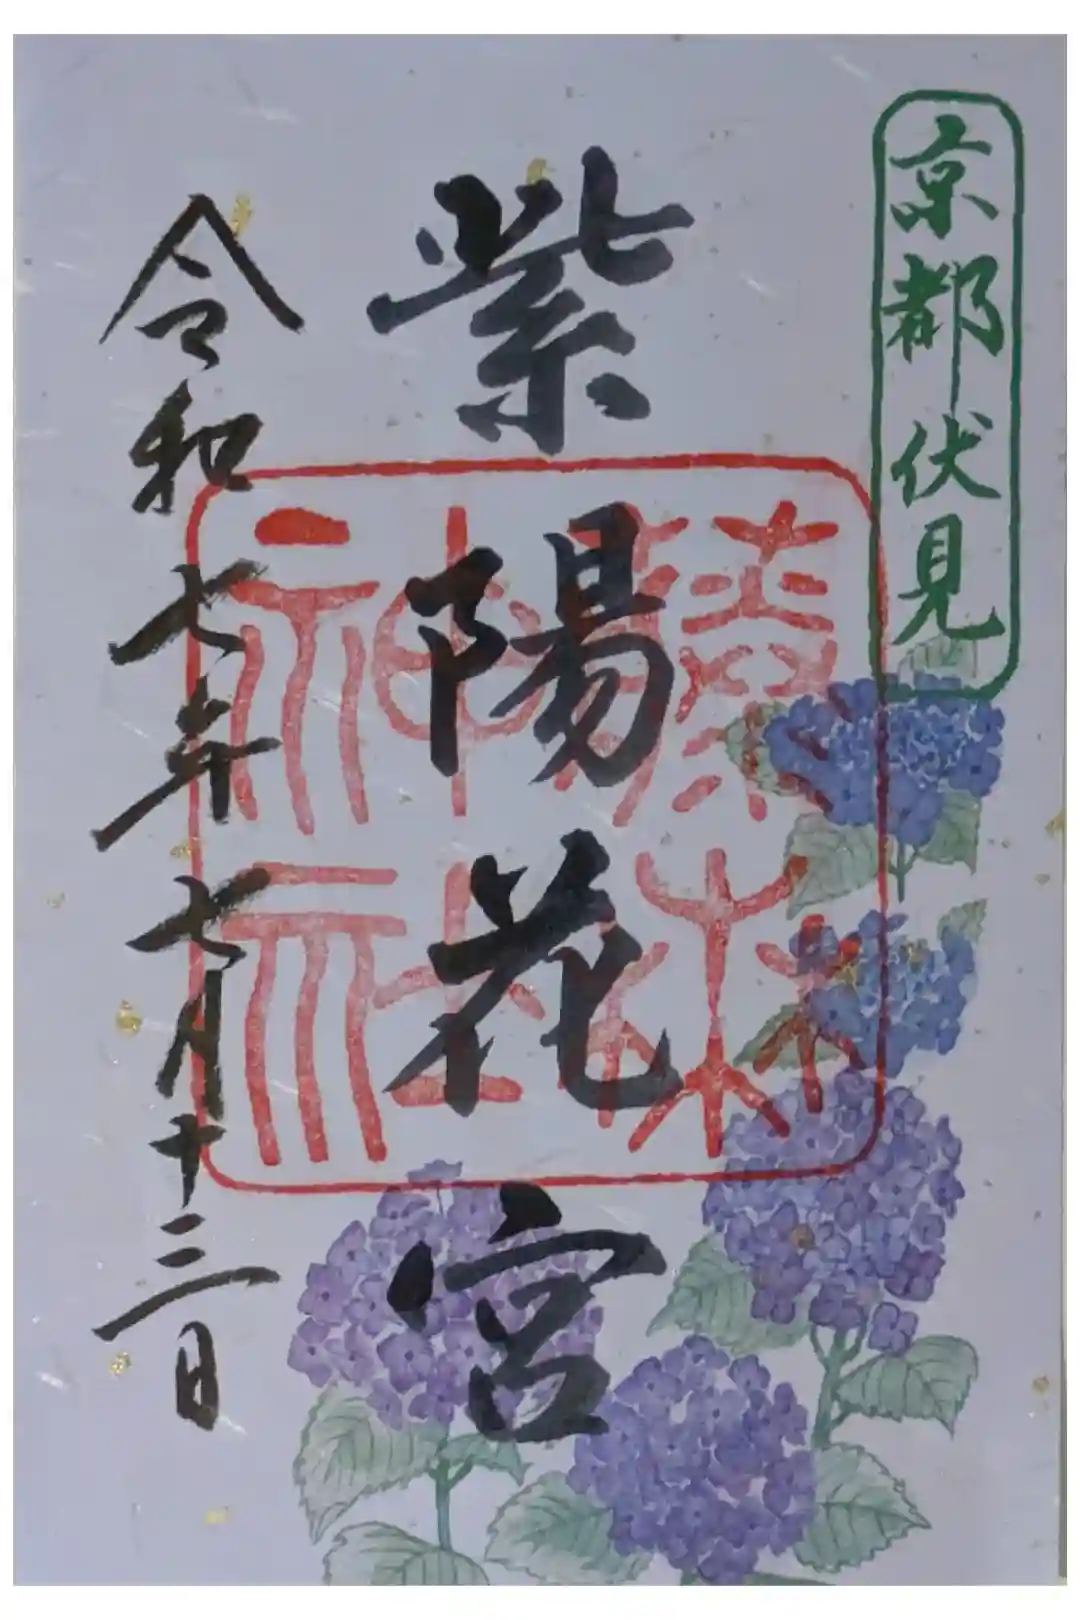 京都伏見
紫陽花宮
藤森
神社
令和七年七月十三日